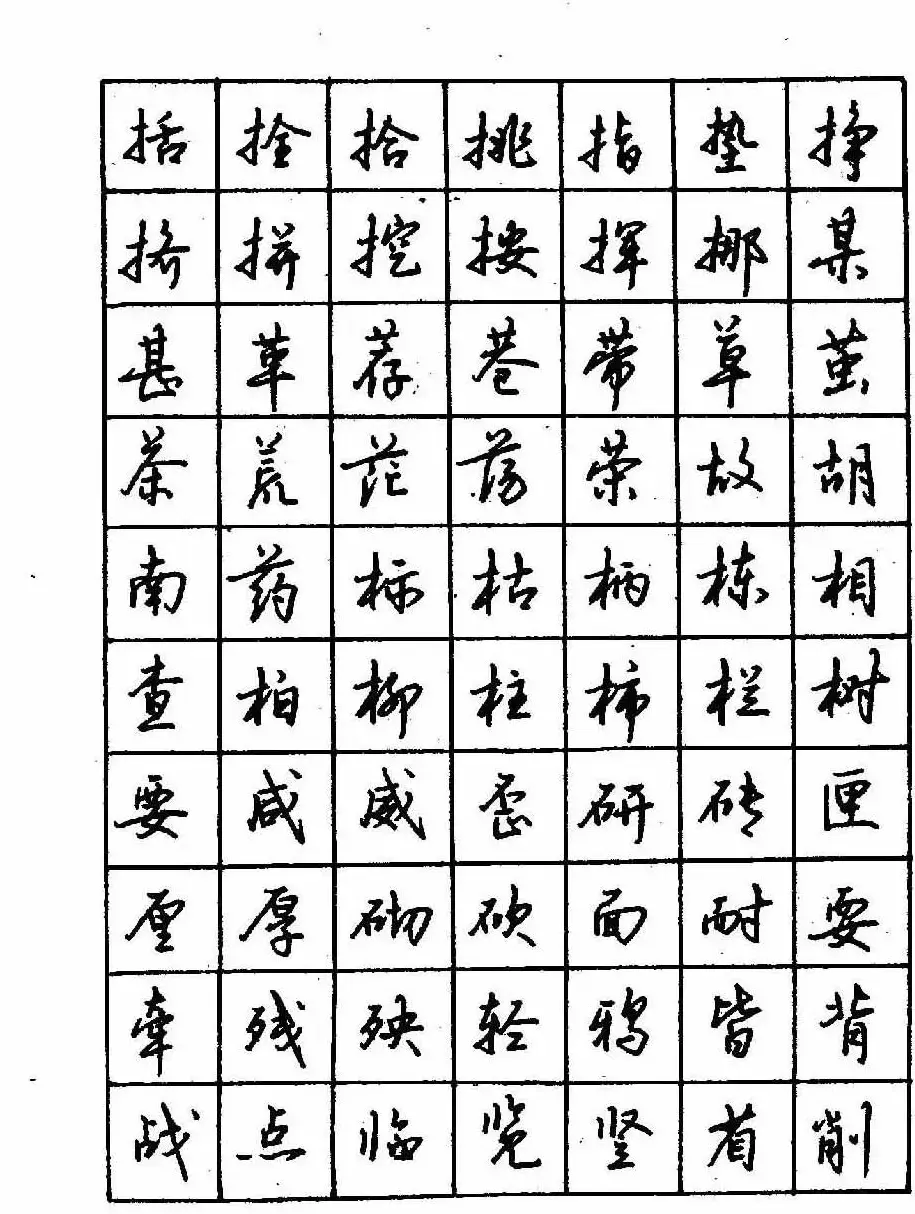 括拴拾挑指垫挣
挤拼挖按挥挪某
甚革荐巷带草茧
茶荒茫荡荣故胡
南药标枯柄栋相
查柏柳柱柿栏树
要咸威歪研砖匣
厘厚砌砍面耐耍
牵残殃轻鸦皆背
战点临览竖省削